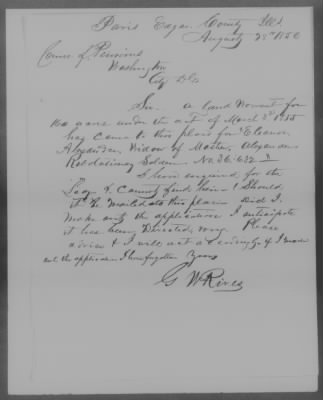 Paris Edgar County Ills.
August 25th 1856
Comr. of Pensions
Washington
City D.C.
Sir a land Warrant for
160 acres under the act of March 3rd 1855
has came to this place for Eleanor
Alexander Widow of Alexander
Revolutionary Soldier No. 26.632
I have enquired for the
Lady & Cannot find her Should
to this place and I
make out the application I anticipate
it has been Directed wrong Please
advise & I will act accordingly if I made
out the application I have forgotten Yours
G W Rives